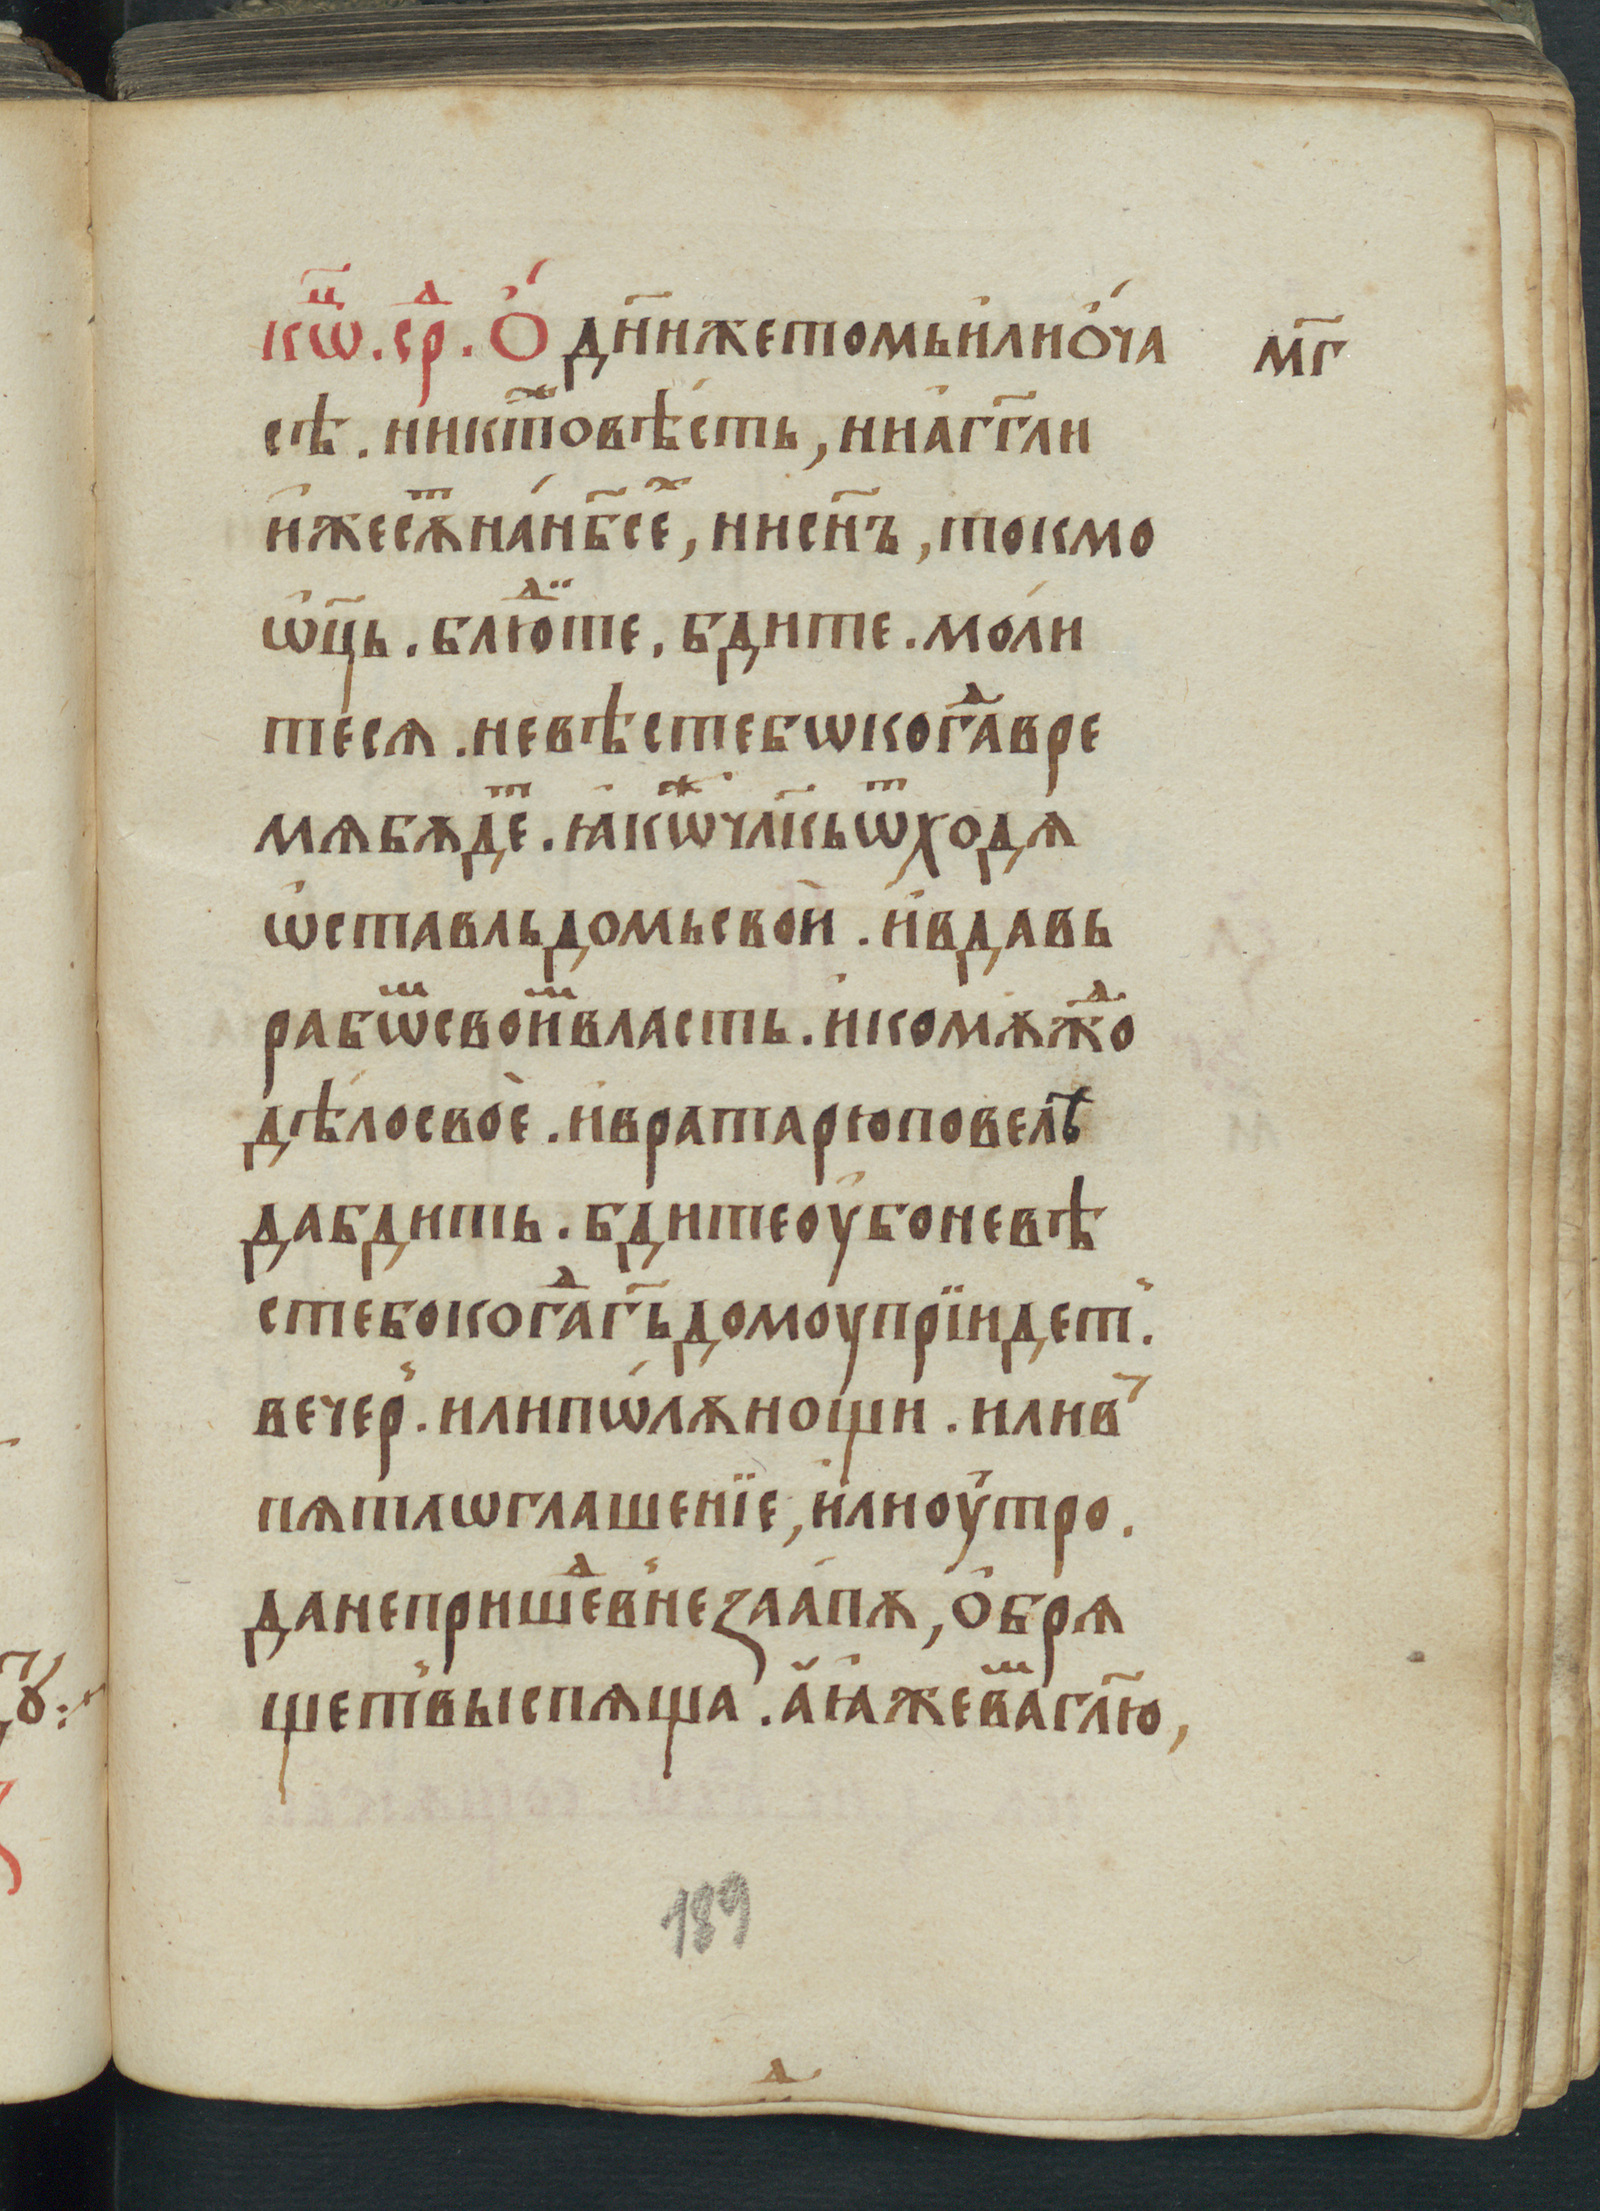 кѡⷰ҇. срⷣ. Ѻ҆́ дн҃нжетомьи҆лиѻ҆́ча мг҃
сѣ. никтоⷤвѣсть, ниа҆гг҃ли
и҆жесѫⷮнан́б҃сеⷯ, нисн҃ъ, токмо
ѡ҆ц҃ь. блюⷣте. бдите. моли
теся. невѣстебѡкогаⷣвре
мѧбѫдеⷮ. ꙗ҆кѡⷤчл҃кьѿходѧ
ѡ҆ставльдомьсвои҆. и҆вдавь
рабѡⷨсвоиⷨвласть. и҆комѫжⷣо
дѣлосвое҆. и҆вратарюповелѣ
дабдить. бдитеоу҆боневѣ
стебокогаⷣг҃ьдомоупрїидет̾.
вечер̾. илипѡлѫнощи. илив̾
пѧтлѡглашенїе, и҆лиоу҆тро.
данепришеⷣв̾незаа҆пѫ, ѻ҆брѧ
щет̾выспѧща. а҆ꙗ҆жеваⷨгл҃ю,
189